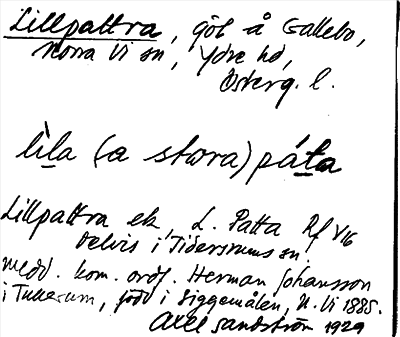 Lillpattra, göl å Gallebo,
Norra Vi sn, Ydre hd,
Österg. l.
lìla (a stora) páta
Lillpattra ek, L. Patta Rf V16
delvis i Tidersrums sn.
Medd. kom. ordf. Herman Johansson
i Tullerum, född i Siggemålen, N. Vi 1885.
Axel Sandström 1929